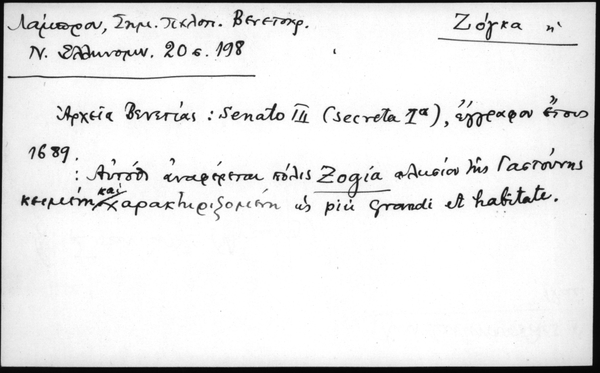 Λάμπρου, Σημ. Πελοπ. Βενετοκρ.
Ζόγκα ἡ
Ν. Ἑλληνομν. 20 σ. 198
Ἀρχεῖα Βενετίας : Senato III (secreta Iª), ἔγγραφον ἔτους
1689.
: Αὐτόθι ἀναφέρεται πόλις Zogia πλησίον τῆς Γαστούνης
κειμένη καὶ χαρακτηριζομένη ὡς più grandi et habitate.